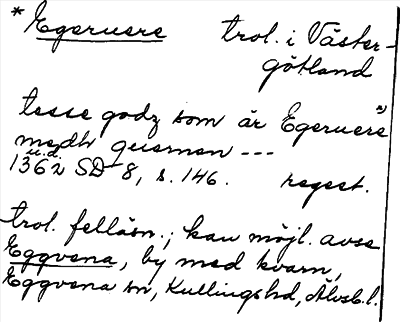 * Egeruere trol. i Väster-
götland
tesse godz som är Egeruere
medh quernen ---
u.d.
1362 SD 8, s. 146. regest.
trol. felläsn.; kan möjl. avse
Eggvena, by med kvarn,
Eggvena sn, Kullingshd, Älvsb.l.